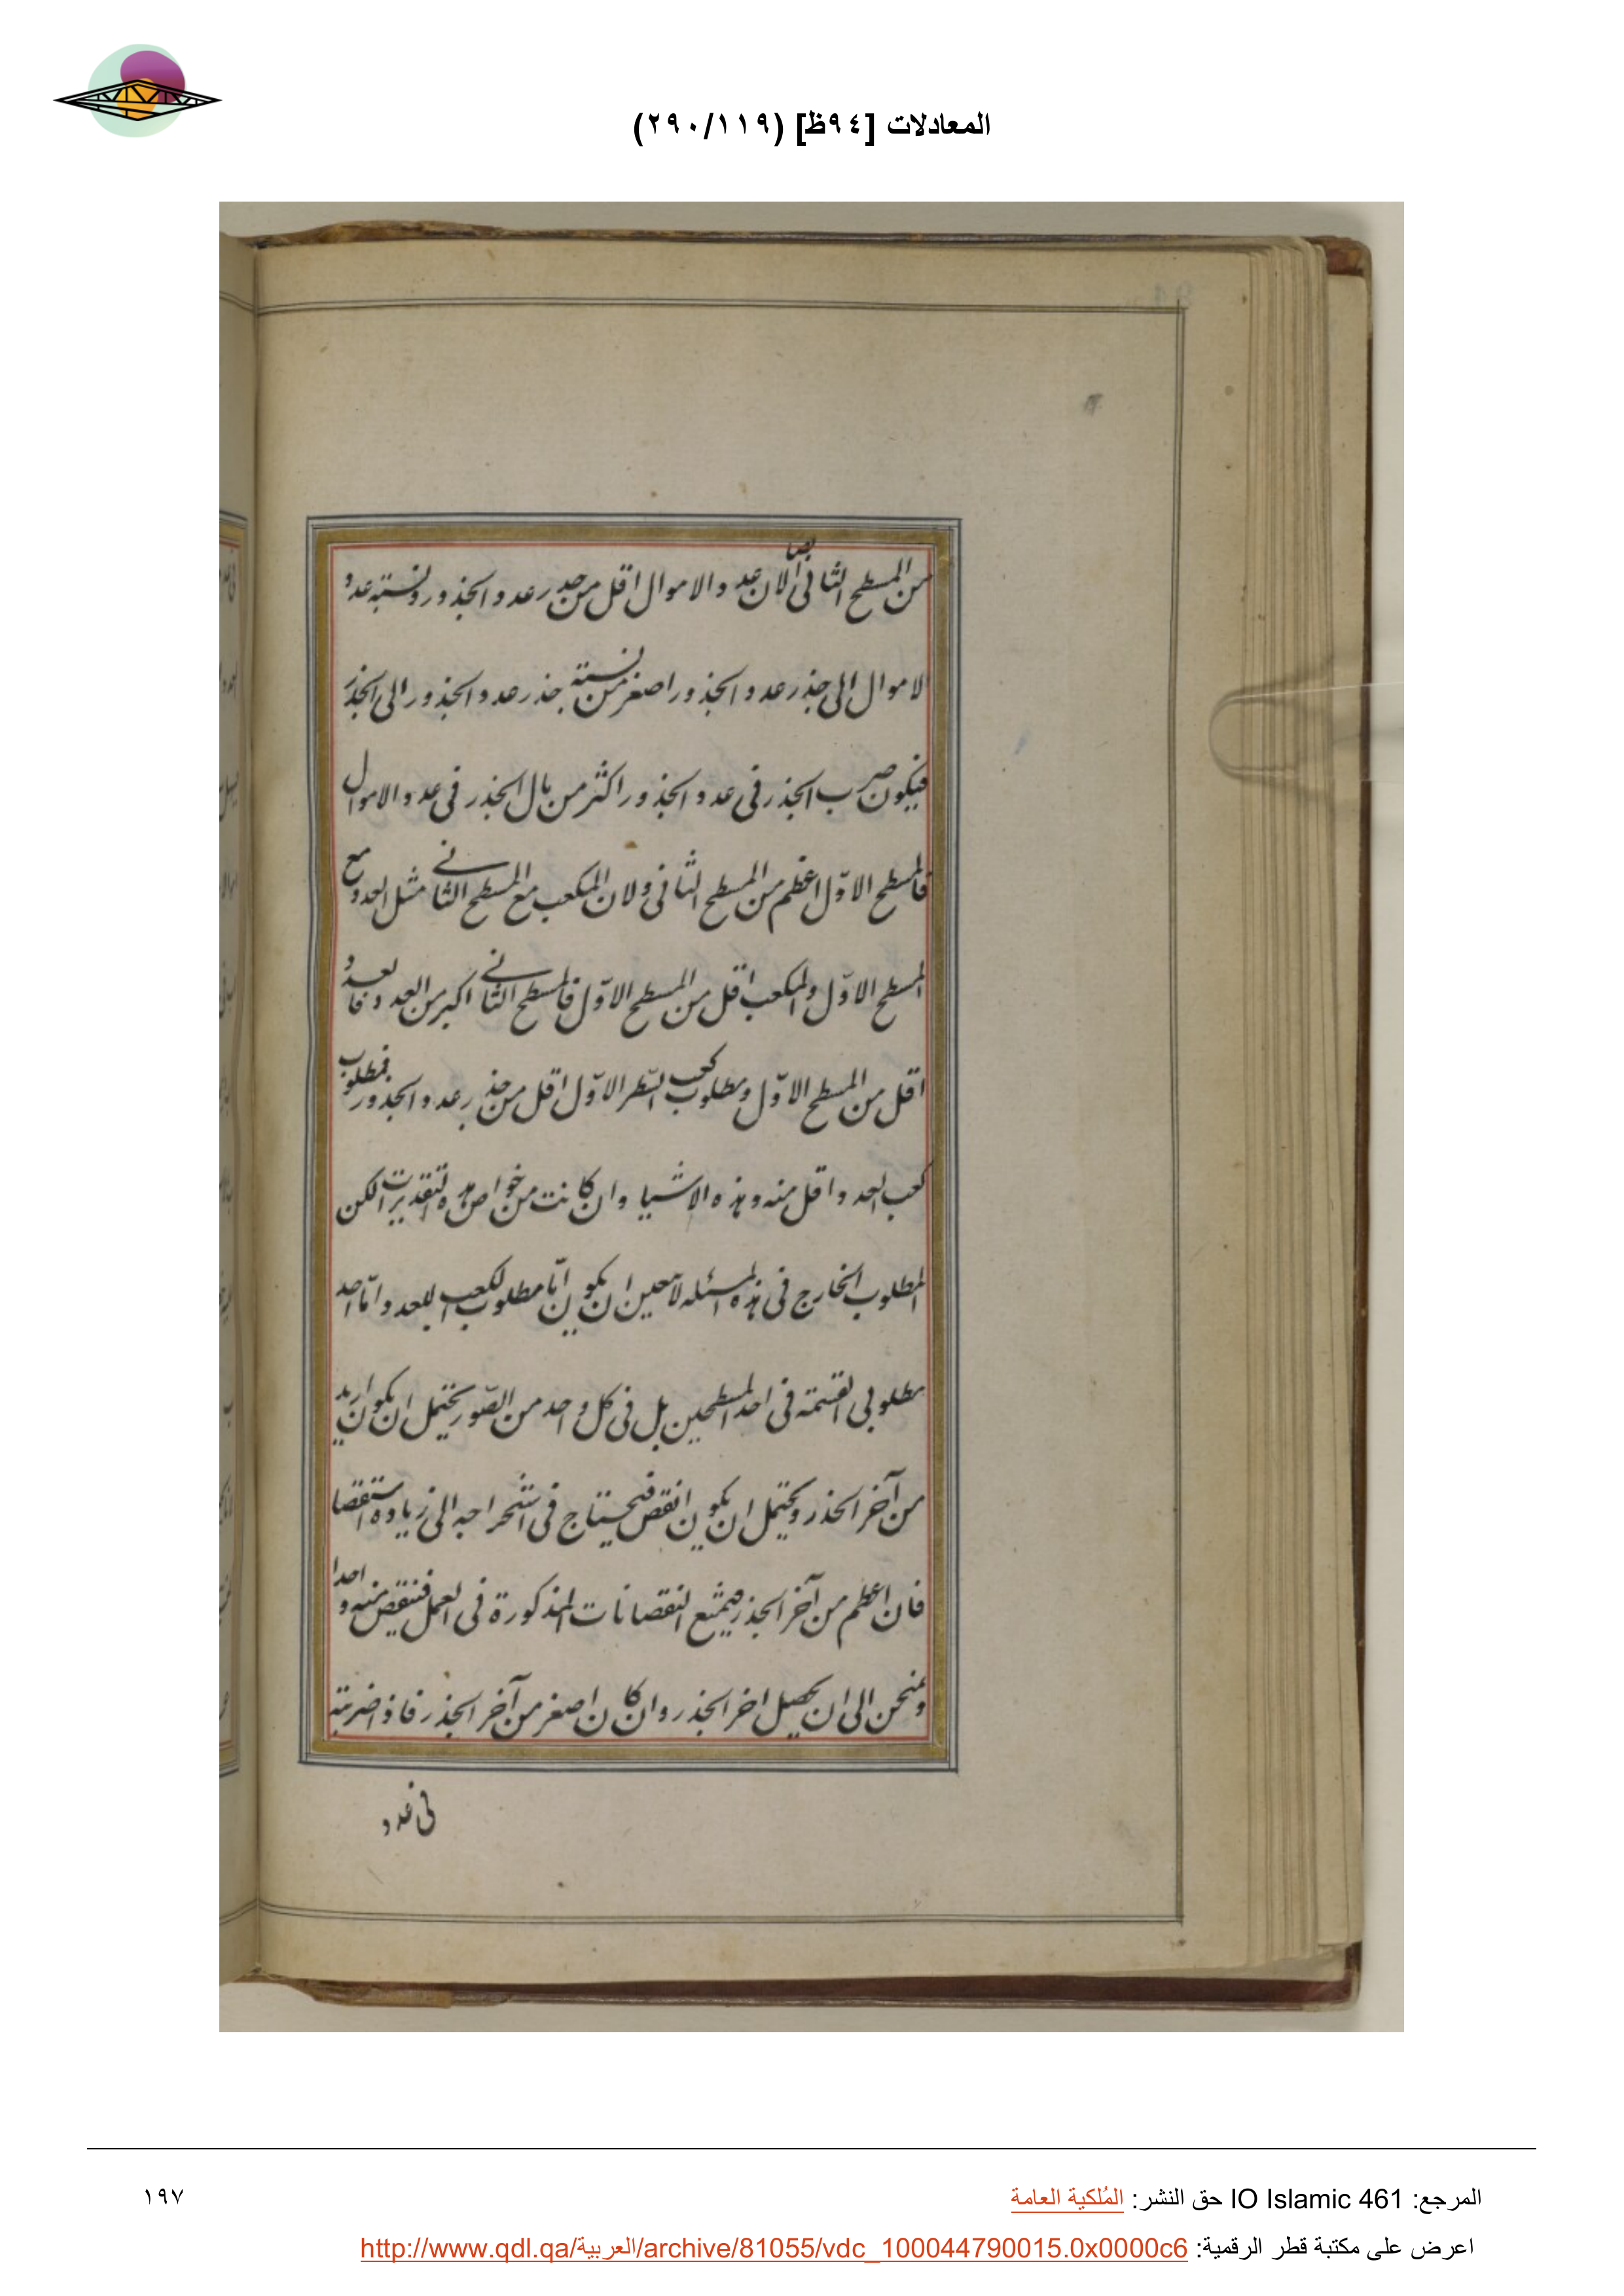 المعادلات [٩٤ظ] (٢٩٠/١١٩)
من المسطح الثانى ايضا لان عدد الاموال اقل من جذر عدد الجذور ونسبته عدد
الاموال الى جذر عدد الجذور اصغر من نسبته جذر عدد الجذور الى الجذر
فيكون ضرب الجذر فى عدد الجذور اكثر من مال الجذر فى عدد الاموال
فالمسطح الاوّل اعظم من المسطح الثانى ولان المكعب مع المسطح الثانى مثل العدد مع
المسطح الاوّل والمكعب اقل من المسطح الاوّل فالمسطح الثانى اكبر من العدد فالعدد
اقل من المسطح الاوّل ومطلوب كعب السطر الاوّل اقل من جذر عدد الجذور فمطلوب
كعب العدد اقل منه وهذه الاشيا وان كانت من خواص هذه التقديرات لكن
المطلوب الخارج فى هذه المسئله لا تتعين ان يكون امّا مطلوب الكعب للعدد وامّا احد
مطلوبى القسمته فى احد المسطحين بل فى كل واحد من الصّور يحتمل ان يكون ازيد
من آخر الجذر ويحتمل ان يكون انقص فيحتاج فى استخراجه الى زيادة استقصا
فان اعظم من آخر الجذر فيمتنع النقصانات المذكورة فى العمل فننقص منه واحدا
ونمتحن الى ان يحصل اخر الجذر وان كان اصغر من آخر الجذر فاذا ضربته
فى عدد
المرجع: IO Islamic 461 حق النشر: المُلكية العامة
١٩٧
اعرض على مكتبة قطر الرقمية: http://www.qdl.qa/العربية/archive/81055/vdc_100044790015.0x0000c6